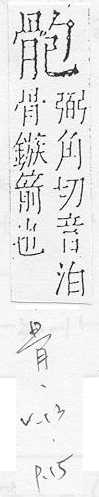 骲
弼角切音泊
骨鏃箭也
骨、
v.13.
p.15